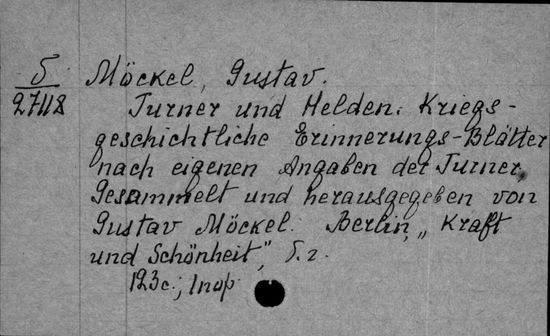 Б
27118
Möckel, Gustav.
Turner und Helden. Kriegs-
geschichtliche Erinnerungs-Blätter
nach eigenen Angaben der Turner.
Gesammelt und herausgegeben von
Gustav Möckel. Berlin, „Kraft
und Schönheit", Б. г.
123 с.;